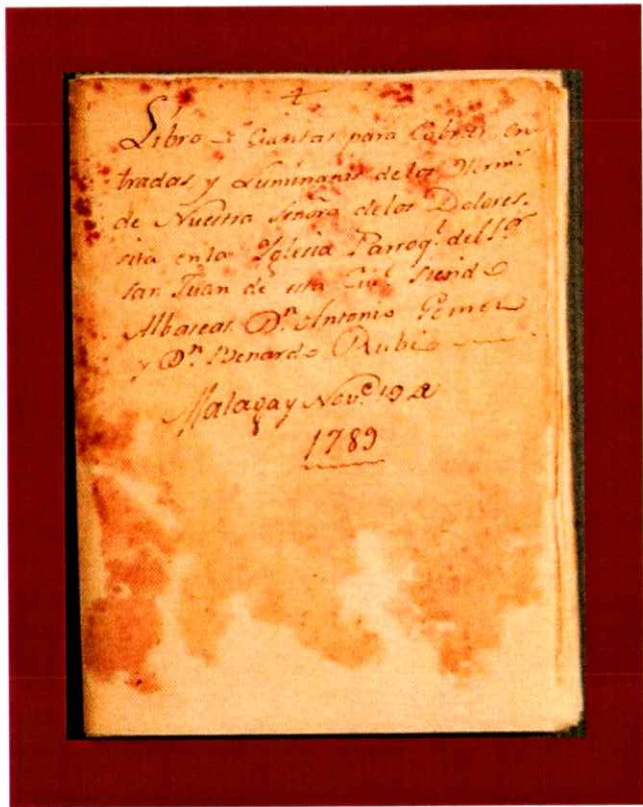 Libro de Quentas para Cobrar en
tradas y Luminarias de los Herm.s
de Nuestra Señora de los Dolores.
sita en la Iglesia Parroq.l del S.or
san Juan de esta Ciu.d siendo
Albaseas D.n Antonio Gomez
y D.n Bernardo Rubio
Malaga y Nov.e 19 de
1789